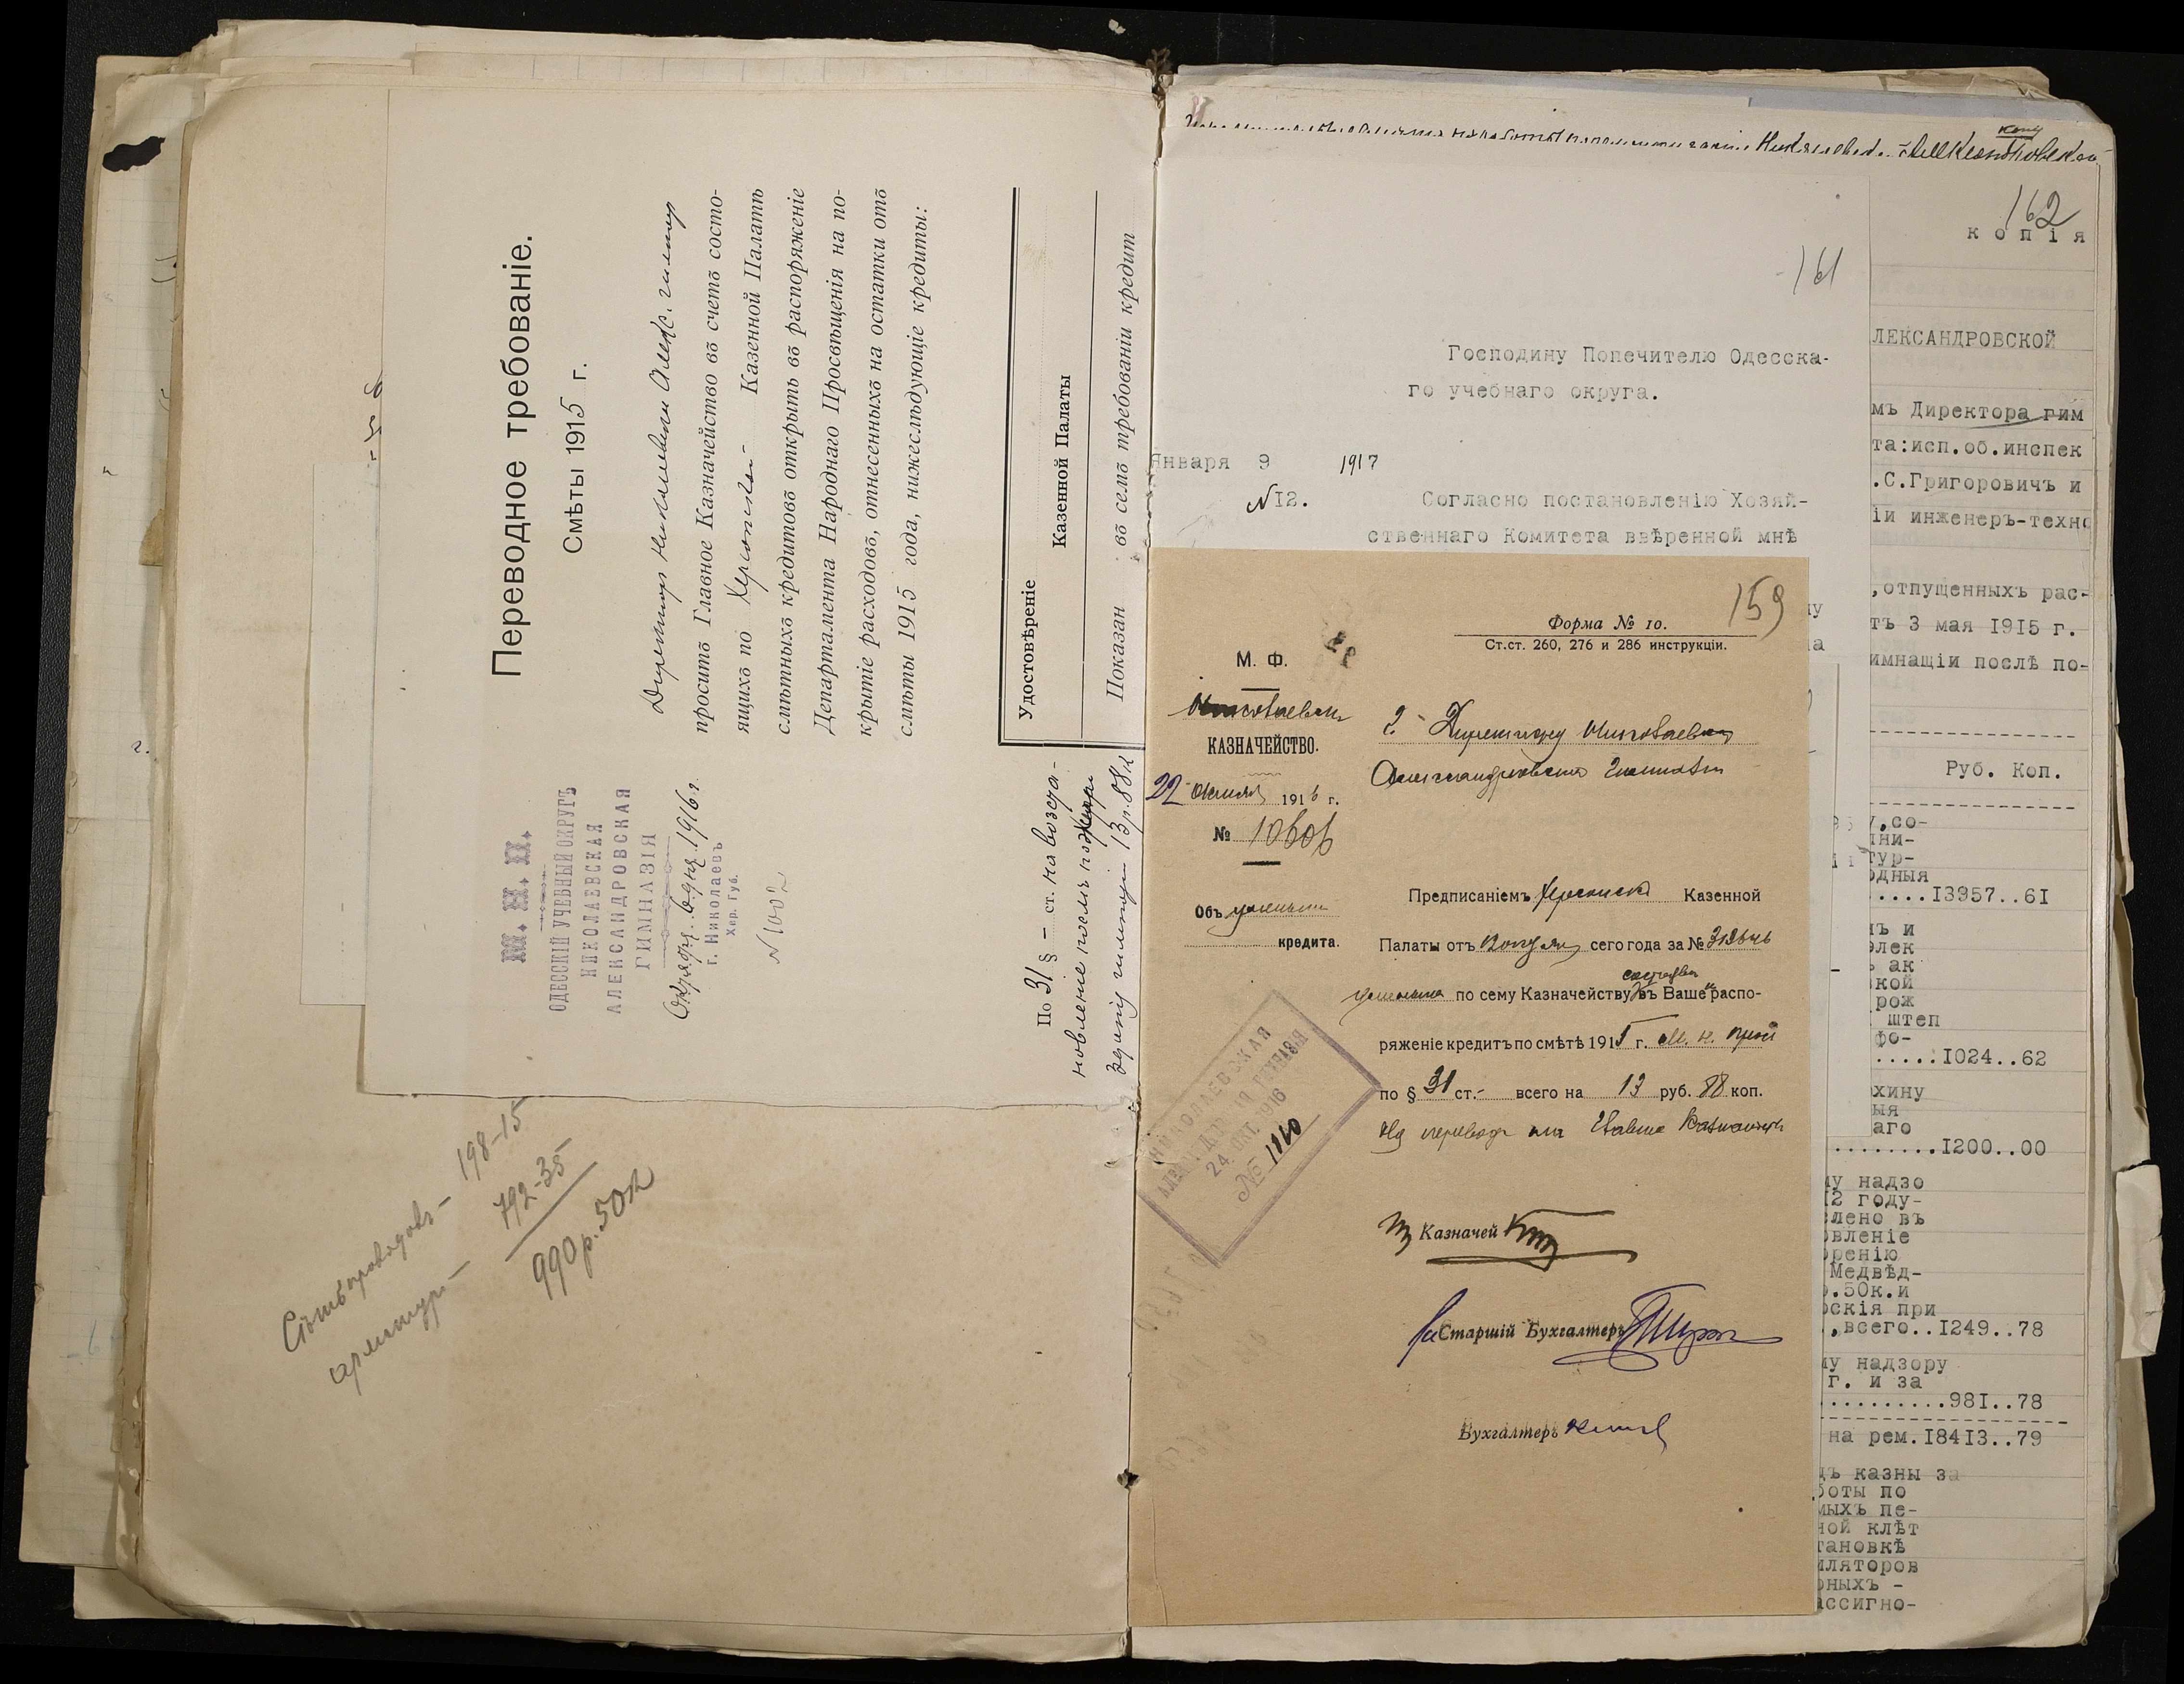 Переводное требованіе.
Смѣты 1915 г.
Директоръ Николаевской Алекс. гимназ
проситъ Главное Казначейство въ счетъ состо-
ящихъ по Херсонской Казенной Палатѣ
смѣтныхъ кредитовъ открыть въ распоряженіе
Департамента Народнаго Просвѣщенія на по-
крытіе расходовъ, отнесенныхъ на остатки отъ
смѣты 1915 года, нижеслѣдующіе кредиты:
М. Н. П.
ОДЕССКІЙ УЧЕБНЫЙ ОКРУГЪ
НИКОЛАЕВСКАЯ
АЛЕКСАНДРОВСКАЯ
ГИМНАЗІЯ
Октября 6 дня 1916 г.
г. Николаевъ
Хер. Губ.
N 1002
Удостовѣреніе
Казенной Палаты
Показан въ семъ требованіи кредит
По 31 § - ст. на возста-
новленіе послѣ пожара
зданія гимназіи 13 р. 88 к
Сѣть проводовъ - 198-15
арматура - 792-35
990 р. 50 к
162
копія
161
Господину Попечителю Одесска-
го учебнаго округа.
Января 9 1917
N 12.
Согласно постановленію Хозяй-
ственнаго Комитета ввѣренной мнѣ
159
Форма № 10.
Ст.ст. 260, 276 и 286 инструкціи.
М. Ф.
Николаевск
КАЗНАЧЕЙСТВО.
22 октября 1916 г.
№ 10606
Объ усиленіи
кредита.
Г. Директору Николаевской
Александровской Гимназіи
Предписаніемъ Херсонской Казенной
Палаты отъ сего года за №
по сему Казначейству въ Ваше распо-
ряженіе кредитъ по смѣтѣ 1915 г. М. Н. Прос
по § 31 ст. - всего на 13 руб. 88 коп.
Казначей
Старшій Бухгалтеръ
Бухгалтеръ
НИКОЛАЕВСКАЯ
АЛЕКСАНДР-АЯ ГИМНАЗІЯ
24 ОКТ. 1916
№ 1140
ЛЕКСАНДРОВСКОЙ
мъ Директора гим
та:исп.об.инспек
.С.Григоровичъ и
іи инженеръ-техно
,отпущенныхъ рас-
тъ 3 мая 1915 г.
имназіи послѣ по-
Руб. Коп.
у,со-
ни-
тур-
одныя
.....13957..61
ъ и
элек
ак
кой
рож
штеп
фо-
.....1024..62
хину
ыя
аго
........1200..00
у надзо
12 году-
лено въ
овленіе
оренію
Медвѣд-
.50к.и
рскія при
,всего..1249..78
му надзору
г. и за
.........981..78
на рем.18413..79
дъ казны за
боты по
мыхъ пе-
ной клѣт
тановкѣ
иляторов
рныхъ -
ассигно-